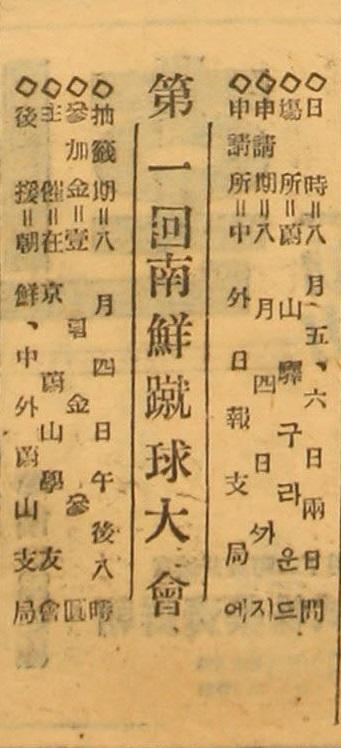 ◇日時＝八月五、六日兩日間
◇場所＝蔚山驛구라운드
◇申請期＝八月四日ᄭᅡ지
◇申請所＝中外日報支局에
第一回南鮮蹴球大會
◇抽籤期＝八月四日午後八時
◇參加金＝壹팀金參圓
◇主催＝在京蔚山學友會
◇後援＝朝鮮、中外蔚山支局